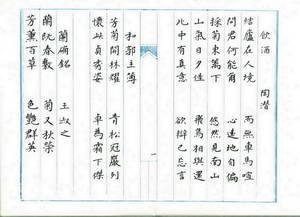 飲酒 陶潛
結廬在人境 而無車馬喧
問君何能爾 心遠地自偏
採菊東籬下 悠然見南山
山氣日夕佳 飛鳥相與還
此中有真意 欲辯已忘言
一
和郭主簿
芳菊開林耀 青松冠巖列
懷此貞秀姿 卓為霜下傑
蘭 銘 王淑之
蘭既春敷 菊又秋榮
芳薰百草 色艷群英